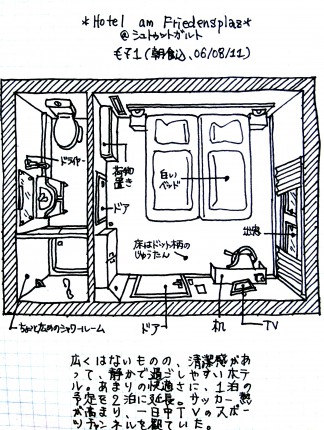 *Hotel am Friedensplaz*
@シュトゥットガルト
€71(朝食込、06/08/11)
ドライヤー
荷物
置き
ドア
白い
ベッド
出窓
床はドット柄の
じゅうたん
ちょっと広めのシャワールーム
ドア
机
TV
広くはないものの、清潔感があ
って、静かで過ごしやすいホテ
ル。あまりの快適さに、1泊の
予定を2泊に延長。サッカー熱
が高まり、一日中TVのスポー
ツチャンネルを観ていた。